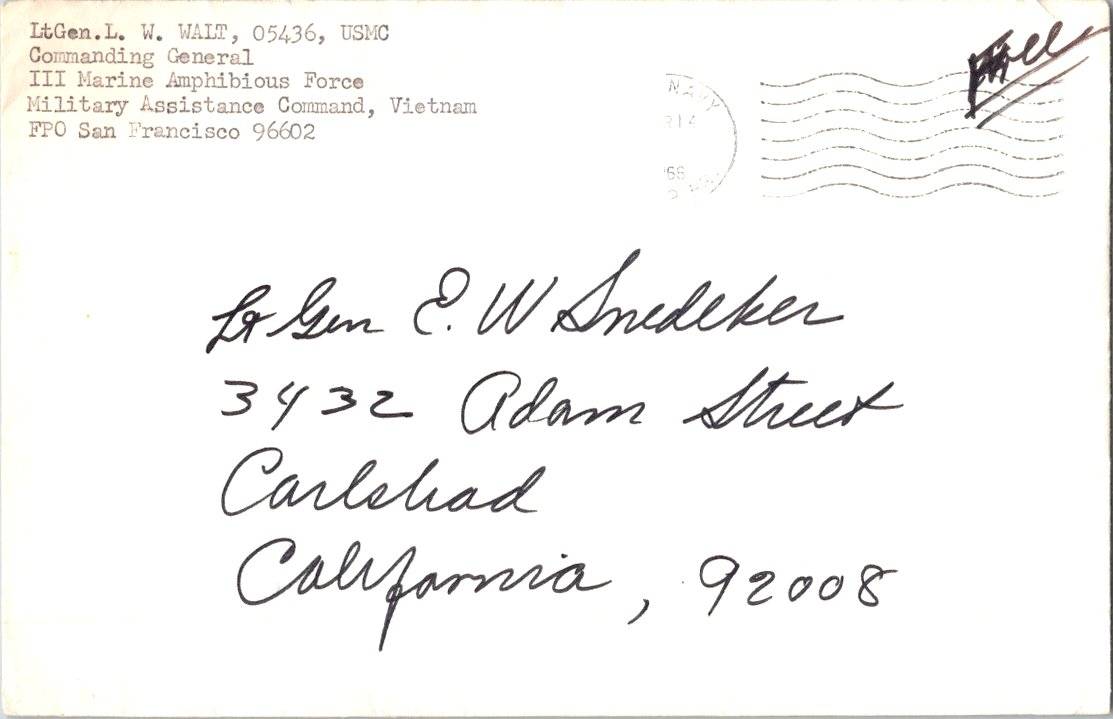 LtGen.L. W. WALT, 05436, USMC
Commanding General
III Marine Amphibious Force
Military Assistance Command, Vietnam
FPO San Francisco 96602
NAVY
14
'66
Free
Lt Gen E. W Snedeker
3432 Adam Street
Carlsbad
California, 92008